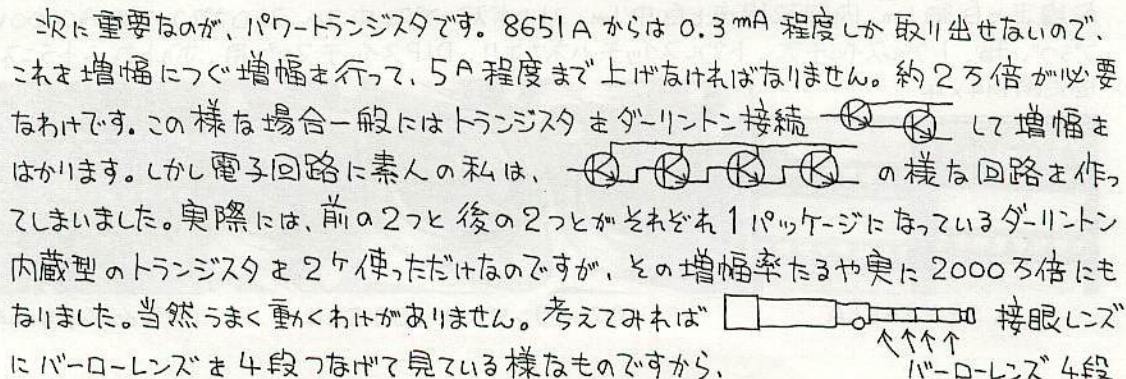 次に重要なのが、パワートランジスタです。8651Aからは0.3mA程度しか取り出せないので、
これを増幅につぐ増幅を行って、5A程度まで上げなければなりません。約2万倍が必要
なわけです。この様な場合一般にはトランジスタをダーリントン接続 して増幅を
はかります。しかし電子回路に素人の私は、 の様な回路を作っ
てしまいました。実際には、前の2つと後の2つとがそれぞれ1パッケージになっているダーリントン
内蔵型のトランジスタを2ケ使っただけなのですが、その増幅率たるや実に2000万倍にも
なりました。当然うまく動くわけがありません。考えてみれば 接眼レンズ
にバーローレンズを4段つなげて見ている様なものですから、
バーローレンズ4段